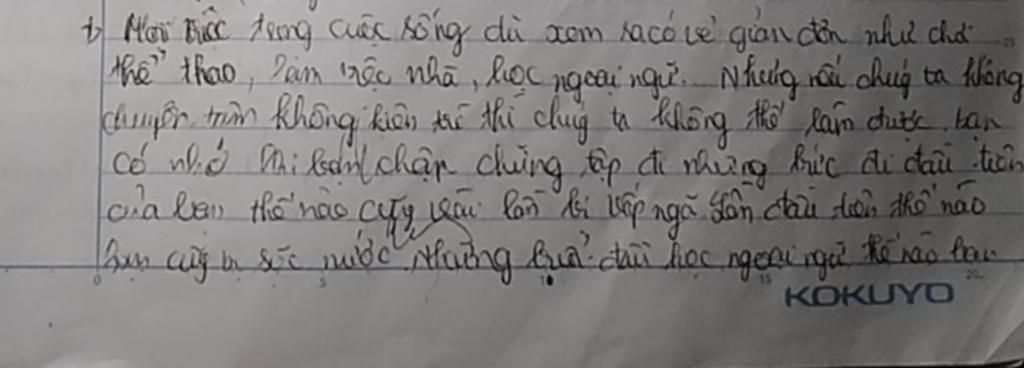 b, Mọi việc trong cuộc sống dù xem ra có vẻ giản đơn như chơi
thể thao, làm việc nhà, học ngoại ngữ. Nhưng nếu chúng ta không
chuyên tâm không kiên trì thì chúng ta không thể làm được. bạn
có nhớ khi bạn chập chững tập đi những bước đi đầu tiên
của bạn thế nào cũng bị vấp ngã lần đầu tiên thế nào
bạn cũng bị sặc nước. Những buổi đầu học ngoại ngữ thế nào bạn
0 5 10 15 20
KOKUYO